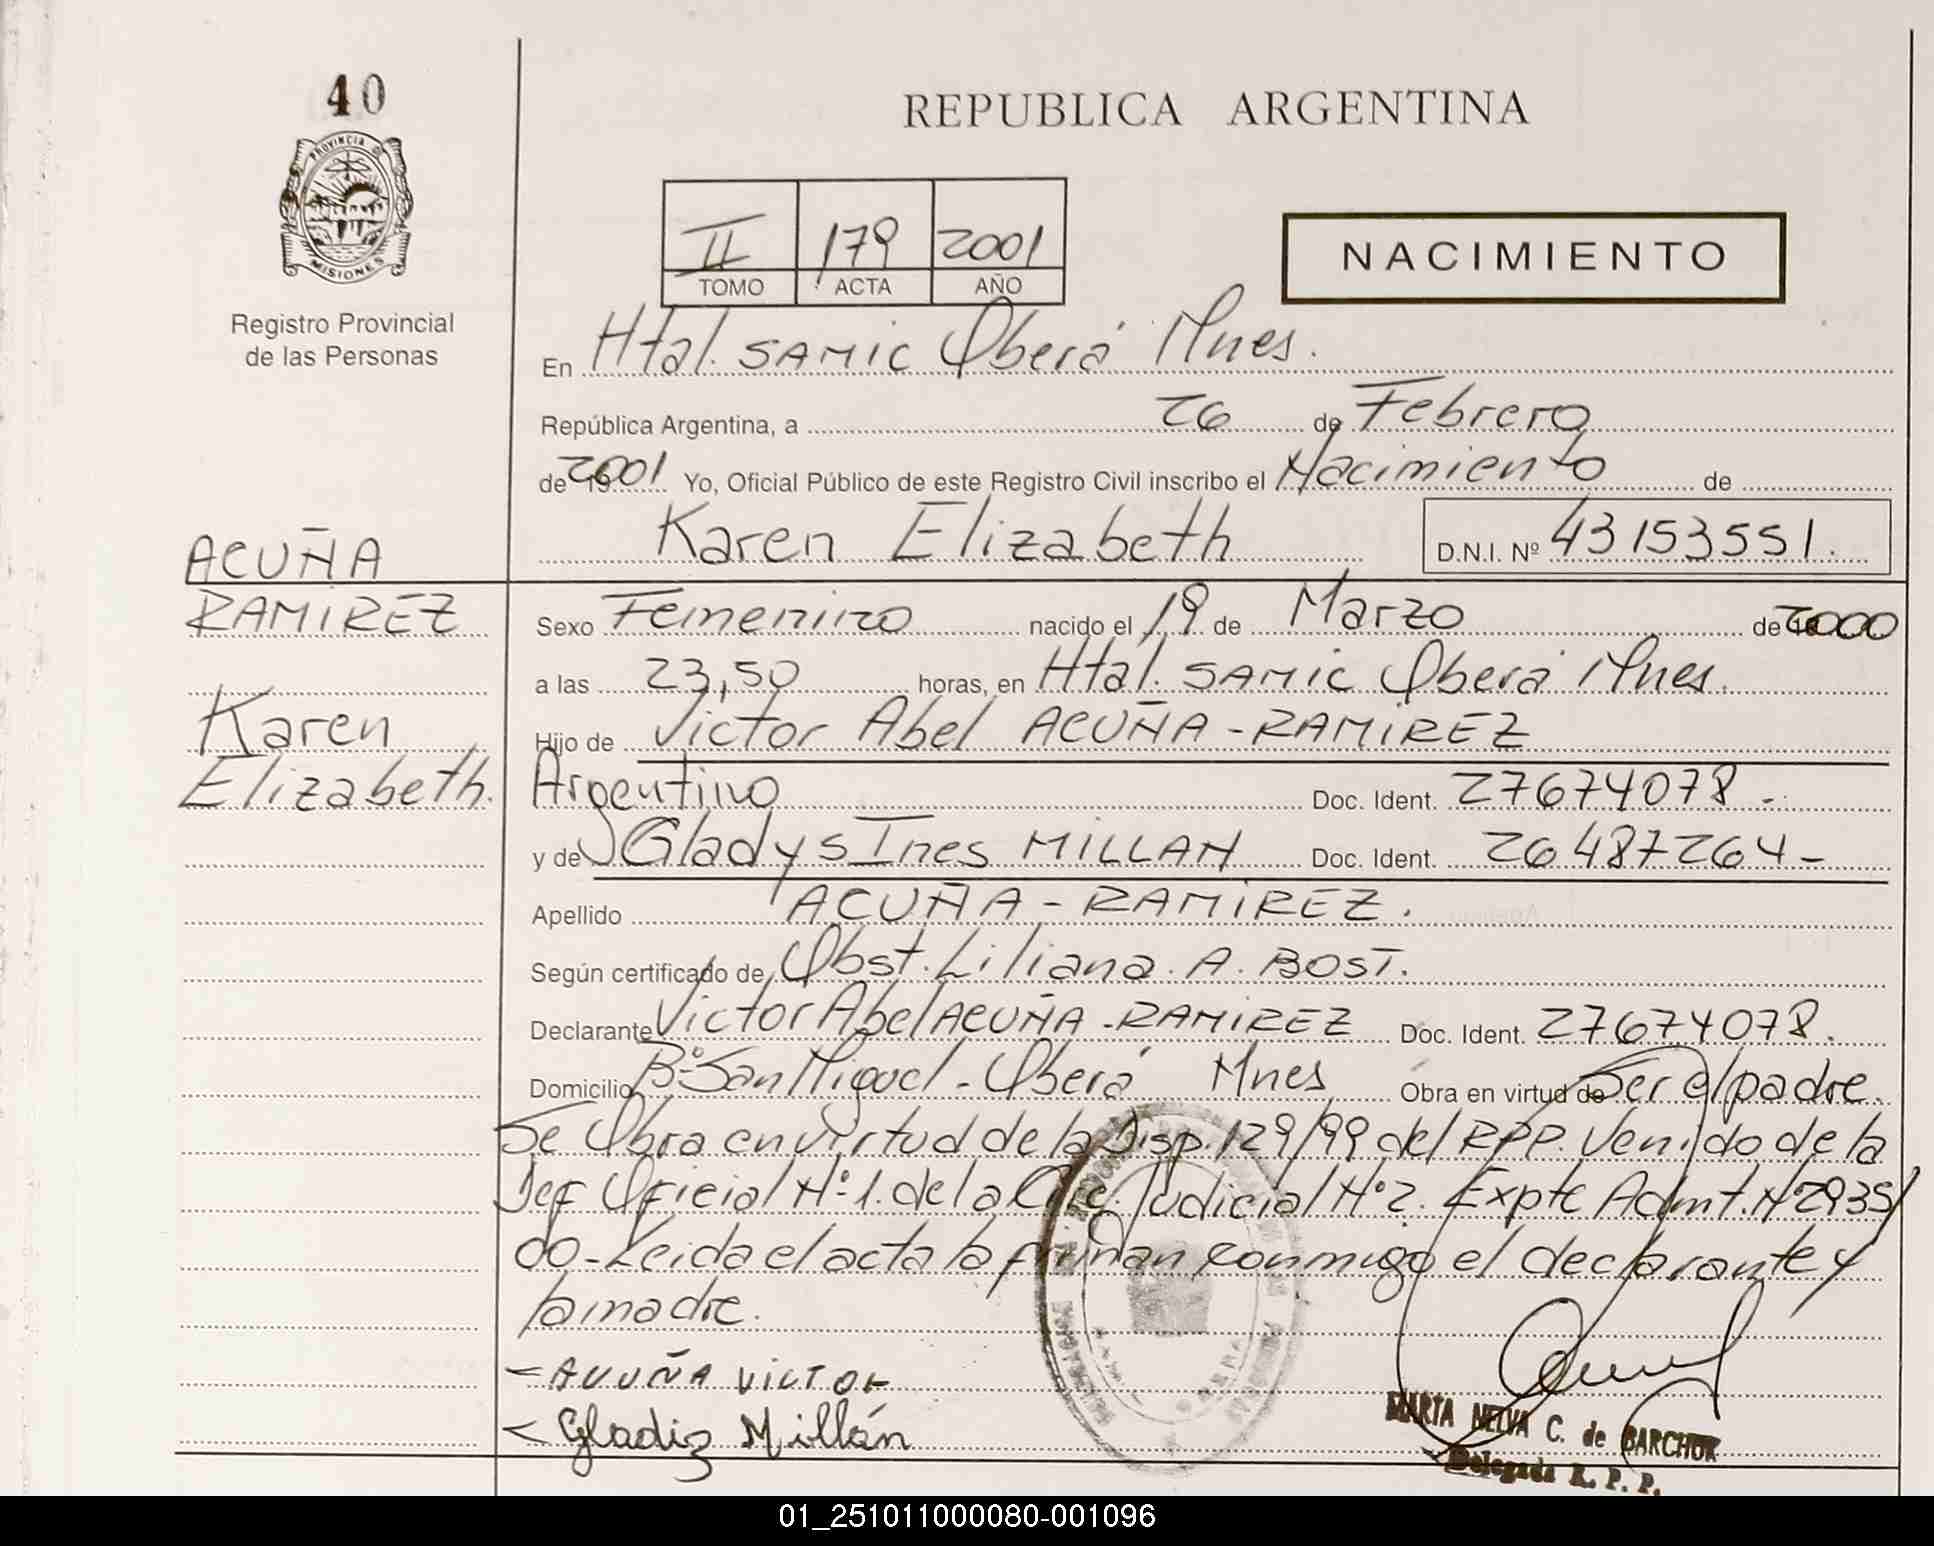 40
PROVINCIA DE
MISIONES
Registro Provincial
de las Personas
REPUBLICA ARGENTINA
II 179 2001
TOMO ACTA AÑO
NACIMIENTO
En Htal. SAMIC Oberá Mnes.
República Argentina, a 26 de Febrero
de 2001 Yo, Oficial Público de este Registro Civil inscribo el Nacimiento de
Karen Elizabeth D.N.I. Nº 43153551.
ACUÑA
RAMIREZ
Karen
Elizabeth.
Sexo Femenino nacido el 19 de Marzo de 2000
a las 23,50 horas, en Htal. SAMIC Oberá Mnes.
Hijo de Victor Abel ACUÑA - RAMIREZ
Argentino Doc. Ident. 27674078 -
y de Gladys Ines MILLAN Doc. Ident. 26487264 -
Apellido ACUÑA - RAMIREZ.
Según certificado de Obst. Liliana. A. BOST.
Declarante Victor Abel ACUÑA - RAMIREZ Doc. Ident. 27674078.
Domicilio Bº San Miguel - Oberá Mnes Obra en virtud de Ser el padre.
Se Obra en virtud de la Disp. 129/99 del RPP. Venido de la
Def Oficial Nº 1. de la Judicial Nº 2. Expte Admt. Nº 2935/
00 - Leida el acta la firman conmigo el declarante y
la madre.
- ACUÑA VICTOR
- Gladiz Millán
MARTA NELVA C. de BARCHUK
Delegada R. P. P.
01_251011000080-001096